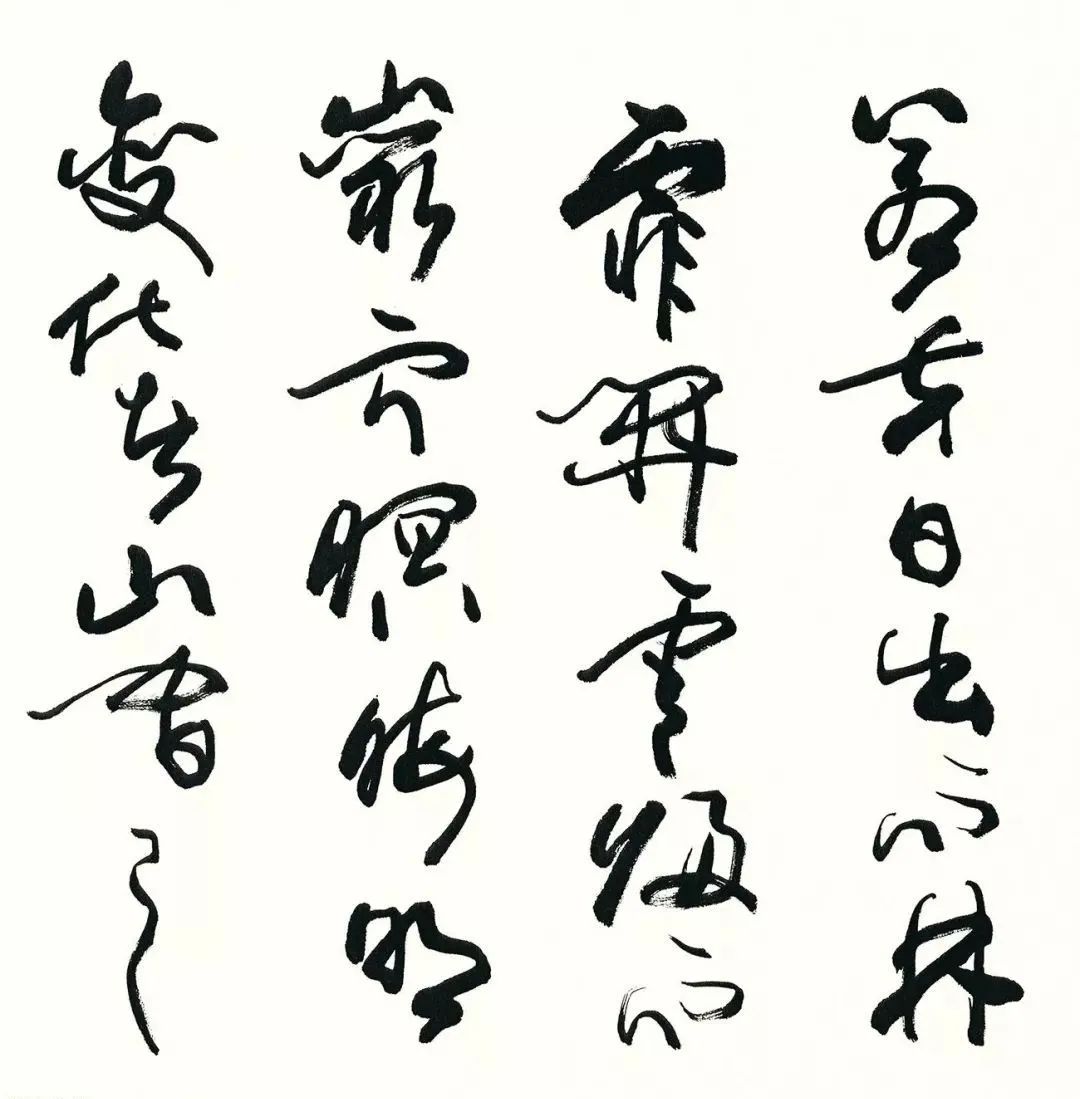 若夫日出而林
霏開雲歸而
巖穴暝晦明
變化者山間之